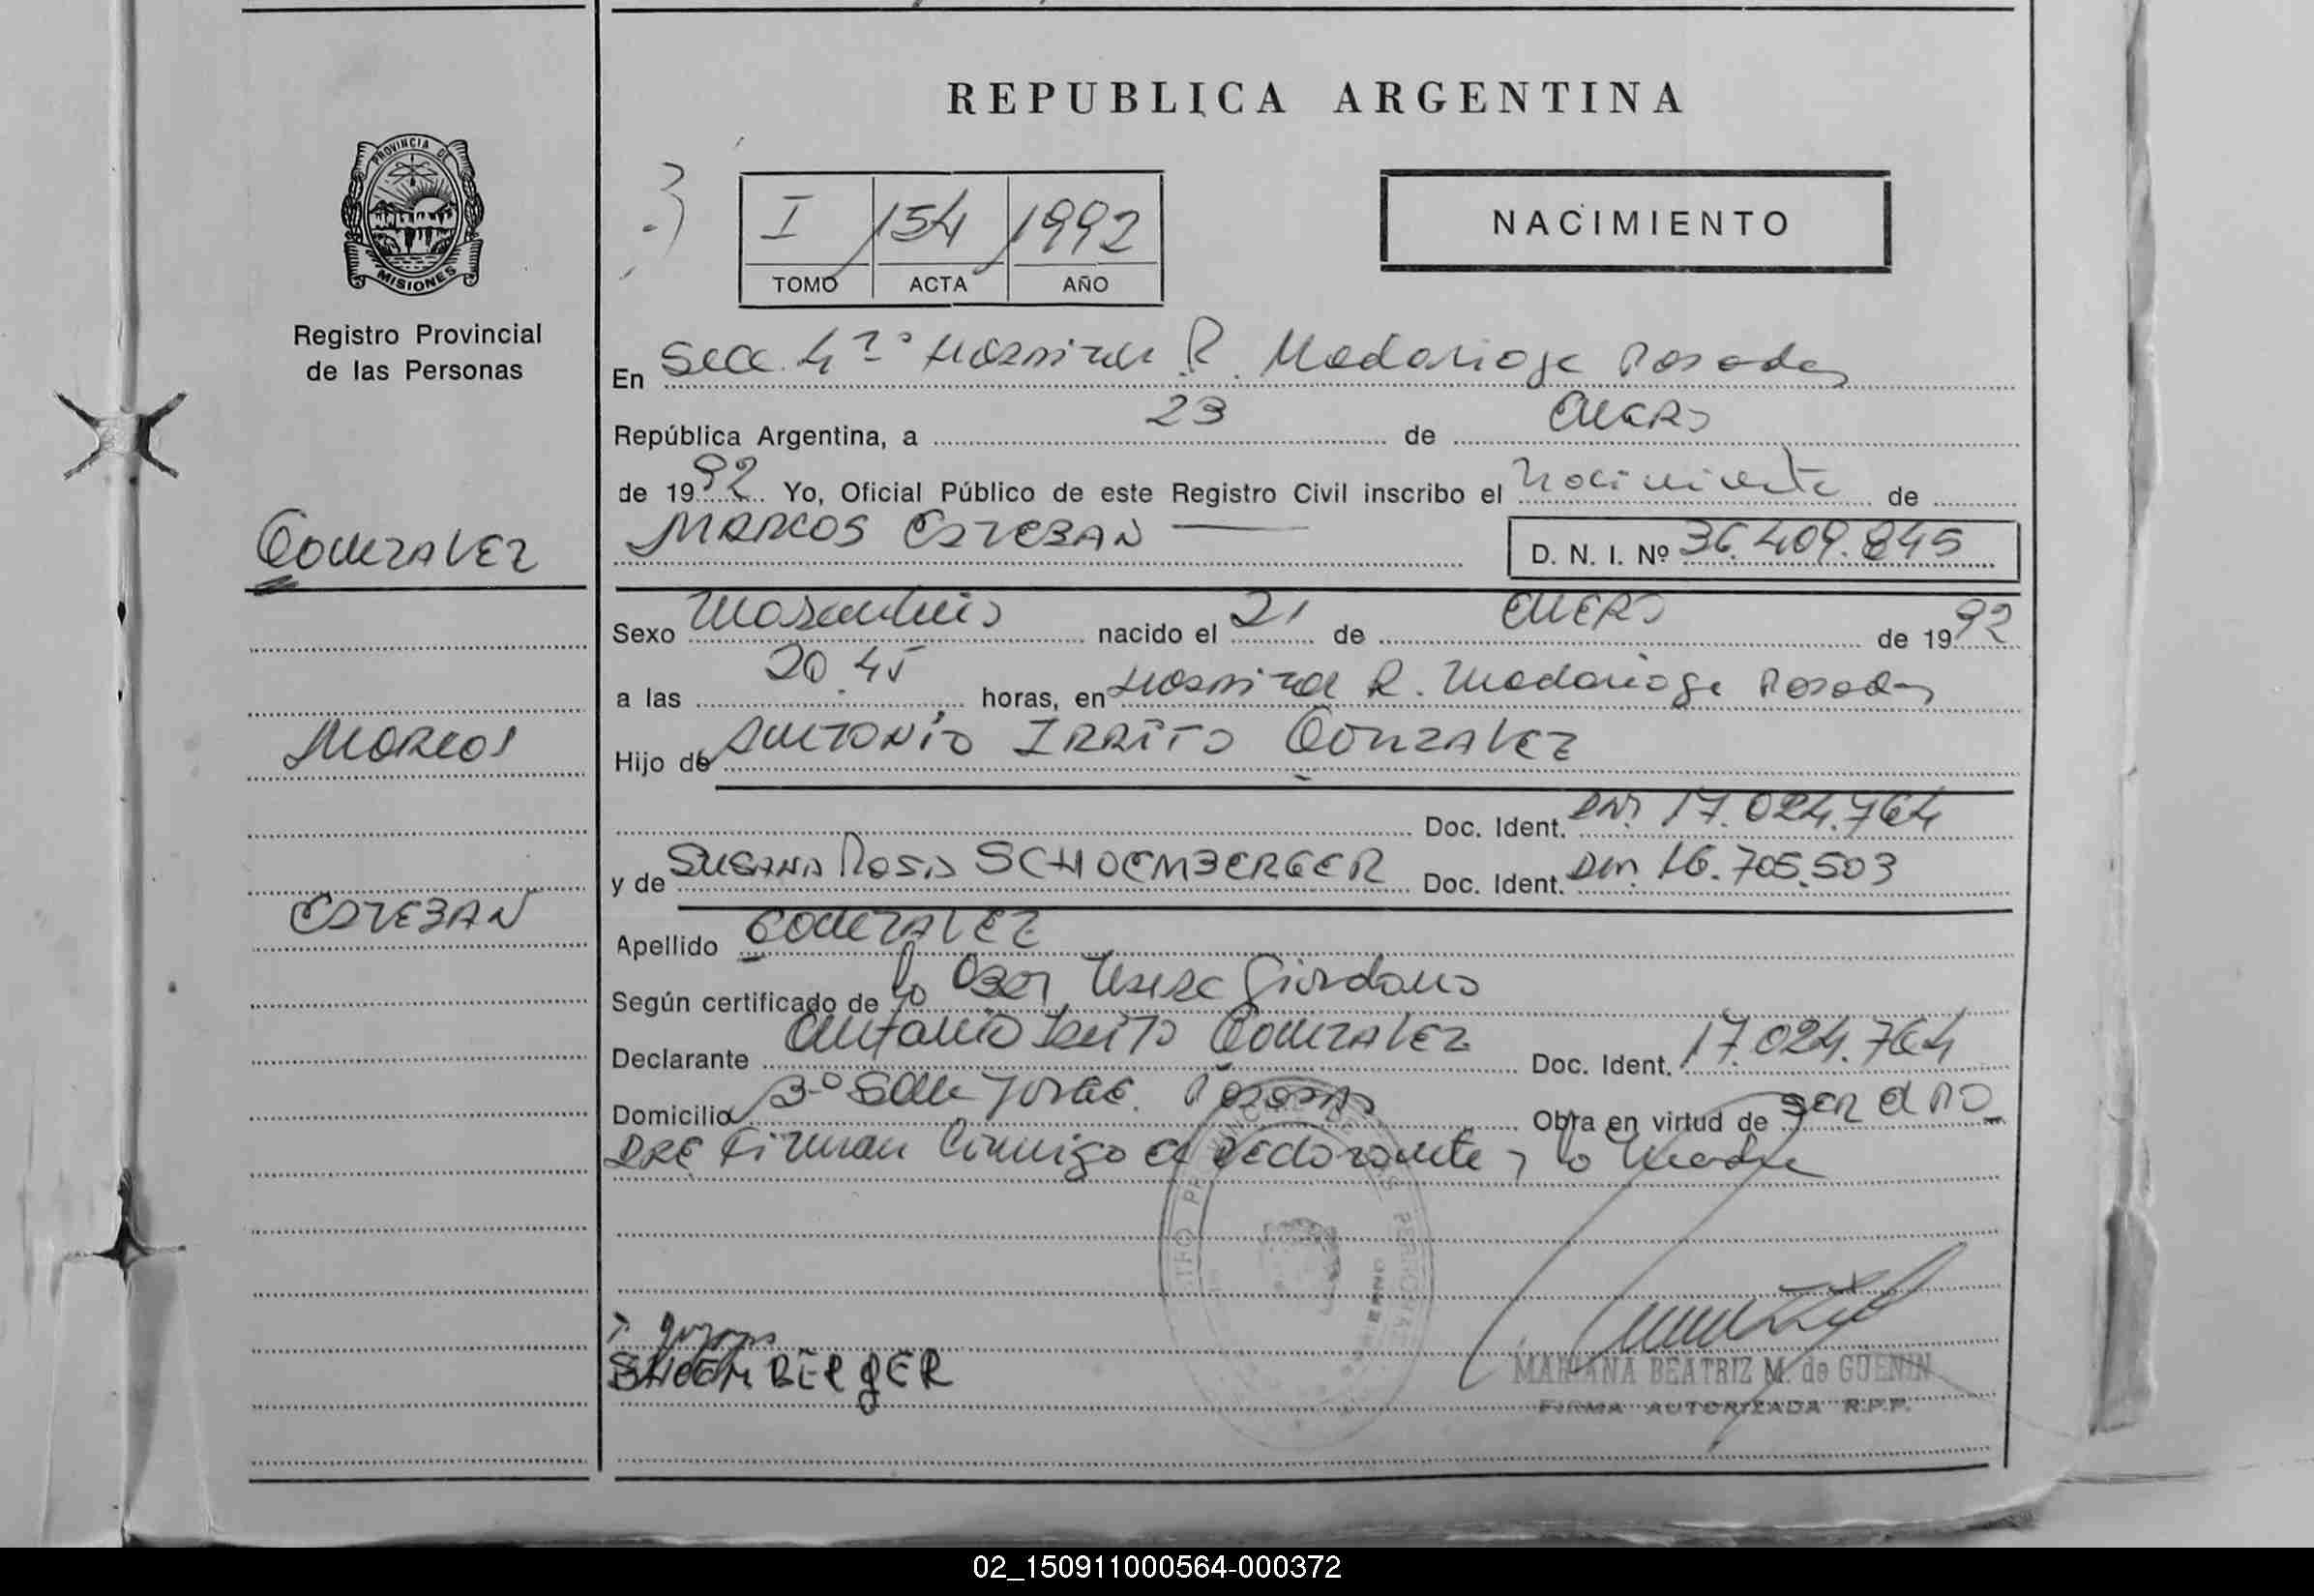 REPUBLICA ARGENTINA
PROVINCIA DE
MISIONES
Registro Provincial
de las Personas
I 154 1992
TOMO ACTA AÑO
NACIMIENTO
En Secc. 4ª Hospital R. Madariaga Posadas
República Argentina, a 23 de ENERO
de 1992 Yo, Oficial Público de este Registro Civil inscribo el Nacimiento de
MARCOS ESTEBAN D. N. I. Nº 36.409.845
GONZALEZ
Sexo Masculino nacido el 21 de ENERO de 1992
a las 20.45 horas, en Hospital R. Madariaga Posadas
MARCOS
Hijo de ANTONIO IRRITO GONZALEZ
Doc. Ident. DNI 17.024.764
y de SUSANA ROSA SCHOEMBERGER Doc. Ident. DNI. 16.705.503
ESTEBAN
Apellido GONZALEZ
Según certificado de la Giordano
Declarante Antonio GONZALEZ Doc. Ident. 17.024.764
Domicilio Posadas Obra en virtud de SER EL PA
DRE Firman Conmigo el declarante y la Madre
SHOEMBERgER
MARIANA BEATRIZ M. de GUENIN
FIRMA AUTORIZADA R.P.P.
02_150911000564-000372